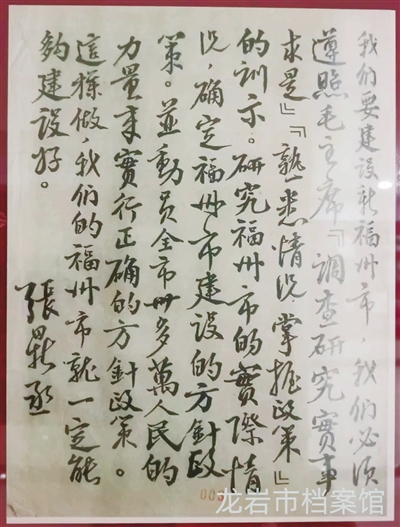 我们要建设新福州市,我们必须
遵照毛主席『調查研究實事
求是』『熟悉情况掌握政策』
的訓示。研究福州市的實際情
况,确定福州市建設的方針政
策。並動員全市卅多萬人民的
力量来實行正确的方針政策。
這樣做,我们的福州市就一定能
夠建設好。
張鼎丞
龙岩市档案馆